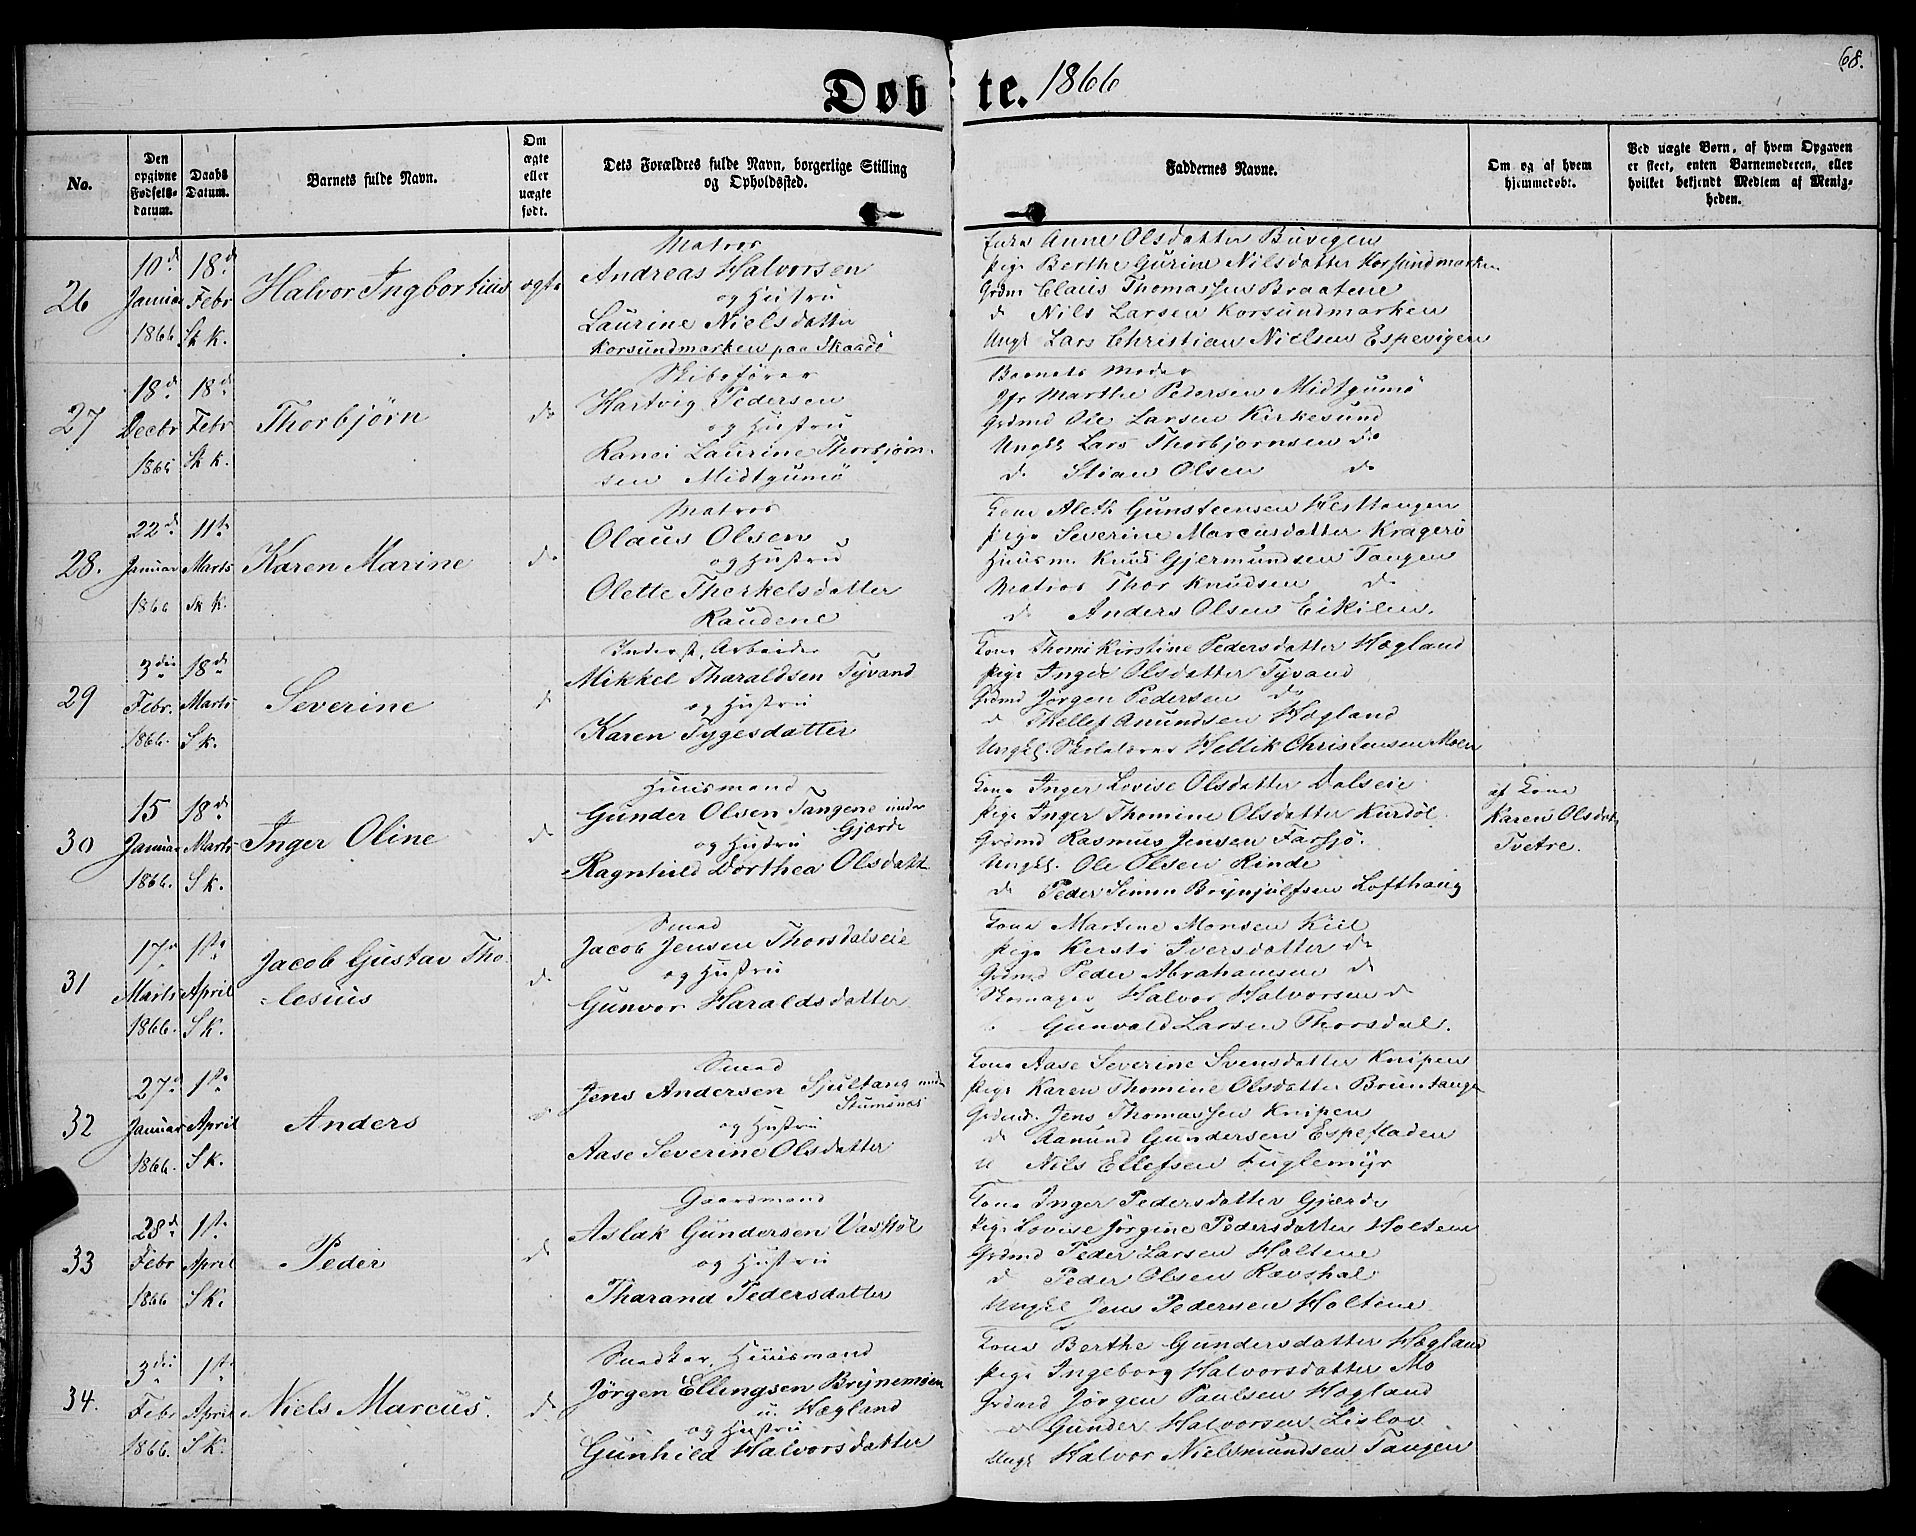 68.
Døbte. 1866
No.
Den opgivne Fødsels-datum.
Daabs Datum.
Barnets fulde Navn.
Om ægte eller uægte født.
Dets Forældres fulde Navn, borgerlige Stilling og Opholdssted.
Faddernes Navne.
Om og af hvem hjemmedøbt.
Ved uægte Børn, af hvem Opgaven er skeet, enten Barnemoderen, eller hvilket bekjendt Medlem af Menigheden.
26
10d Januar 1866
18d Febr Sk k.
Halvor Ingbortius
ægte
Matros
Andreas Halvorsen
og Hustru
Laurine Nielsdatter
Korsundmarken paa Skaadø
Enke Anne Olsdatter Buvigen
Pige Berthe Gurine Nilsdatter Korsundmarken
Grdm Claus Thomassen Braatene
d Nils Larsen Korsundmarken
Ungk Lars Christian Nielsen Espevigen
27
18d Decbr 1865
18d Febr Sk k.
Thorbjørn
do
Skibsfører
Hartvig Pedersen
og Hustru
Laurine Thorbjørn-
sen Midtgumø
Barnets Moder
Jfr Marthe Pedersen Midtgumø
Grdmd Ole Larsen Kirkesund
Ungkl Lars Thorbjørnsen do
d Stian Olsen do
28.
22d Januar 1866
11te Marts Sk k.
Karen Marine
do
Matros
Olaus Olsen
og Hustru
Olette Therkelsdatter
Raudene
Kone Aleth Gunsteensen Hesttangen
Pige Severine Marcusdatter Kragerø
Huusm. Knud Gjermundsen Tangen
Matros Thor Knudsen do
d Anders Olsen Eikilen.
29
3die Febr. 1866.
18d Marts S k.
Severine
d
Inderst, Arbeider
Mikkel Tharaldsen Tyvand
og Hustru
Karen Tygesdatter
Kone Thomi Kirstine Pedersdatter Hægland
Pige Inger Olsdatter Tyvand
Grdmd Jørgen Pedersen do
d Thellef Anundsen Hægland
Ungkl. Skolelærer Hellik Christensen Moen
30
15 Januar 1866.
18d Marts S k.
Inger Oline
d
Huusmand
Gunder Olsen Tangene under
og Hustru Gjærde
Ragnhild Dorthea Olsdatt
Kone Inger Lovise Olsdatter Dalseie
Pige Inger Thomine Olsdatter Kurdøl.
Grdmd Rasmus Jensen Farsjø.
Ungkl. Ole Olsen Rinde
d Peder Simon Brynjulfsen Lofthaug
af Kone
Karen Olsdat,
Tvetre.
31
17d Marts 1866.
1ste April S k.
Jacob Gustav Tho-
lesius
d
Smed
Jacob Jensen Thorsdalseie
og Hustru
Gunvor Haraldsdatter
Kone Martene Monsen Kiil
Pige Kersti Iversdatter do
Grdmd Peder Abrahamsen do
Skomager Halvor Halvorsen d
Gunvald Larsen Thorsdal.
32
27d Januar 1866.
1ste April S k.
Anders
Smed
Jens Andersen Sjultang under
Stumsnæs
og Hustru
Aase Severine Olsdatter
Kone Aase Severine Svensdatter Knipen
Pige Karen Thomine Olsdatter Bruntange
Grdmd. Jens Thomassen Knipen
d Aanund Gundersen Espefladen
U Nils Ellefsen Fuglemyr
33
28d Febr 1866
1ste April S k.
Peder
d
Gaardmand
Aslak Gundersen Vastøl
og Hustru
Tharand Pedersdatter
Kone Inger Pedersdatter Gjærde
Pige Lovise Jørgine Pedersdatter Holtene
Grdmd Peder Larsen Holtene
d Peder Olsen Ravshal
Ungkl Jens Pedersen Holtene
34.
3die Febr 1866.
1ste April S k.
Niels Marcus.
d.
Snedker, Huusmand
Jørgen Ellingsen Brynemoen
u. Hægland
og Hustru
Gunhild Halvorsdatter
Kone Berthe Gundersdatter Hægland
Pige Ingeborg Halvorsdatter Mo
Grdmd Jørgen Paulsen Hægland
Gunder Halvorsen Lislov
Ungk Halvor Nielsmundsen Tangen